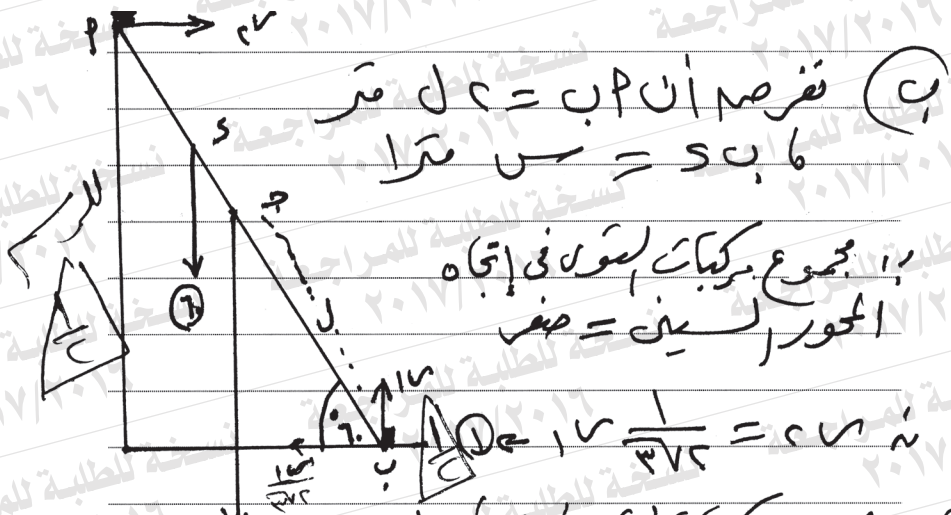 ب نفرض أن أ ب = ٢ ل متر
، ب د = س مترا
∵ مجموع مركبات القوى في اتجاه
المحور السيني = صفر
∴ ر٢ = ١/٢√٣ ر١ ← ①
أ
ر٢
د
جـ
ل
٦٠°
ر١
ب
ر١/٢√٣
١/٢
١/٢
نسخة للطلبة للمراجعة
٢٠١٧/٢٠١٦